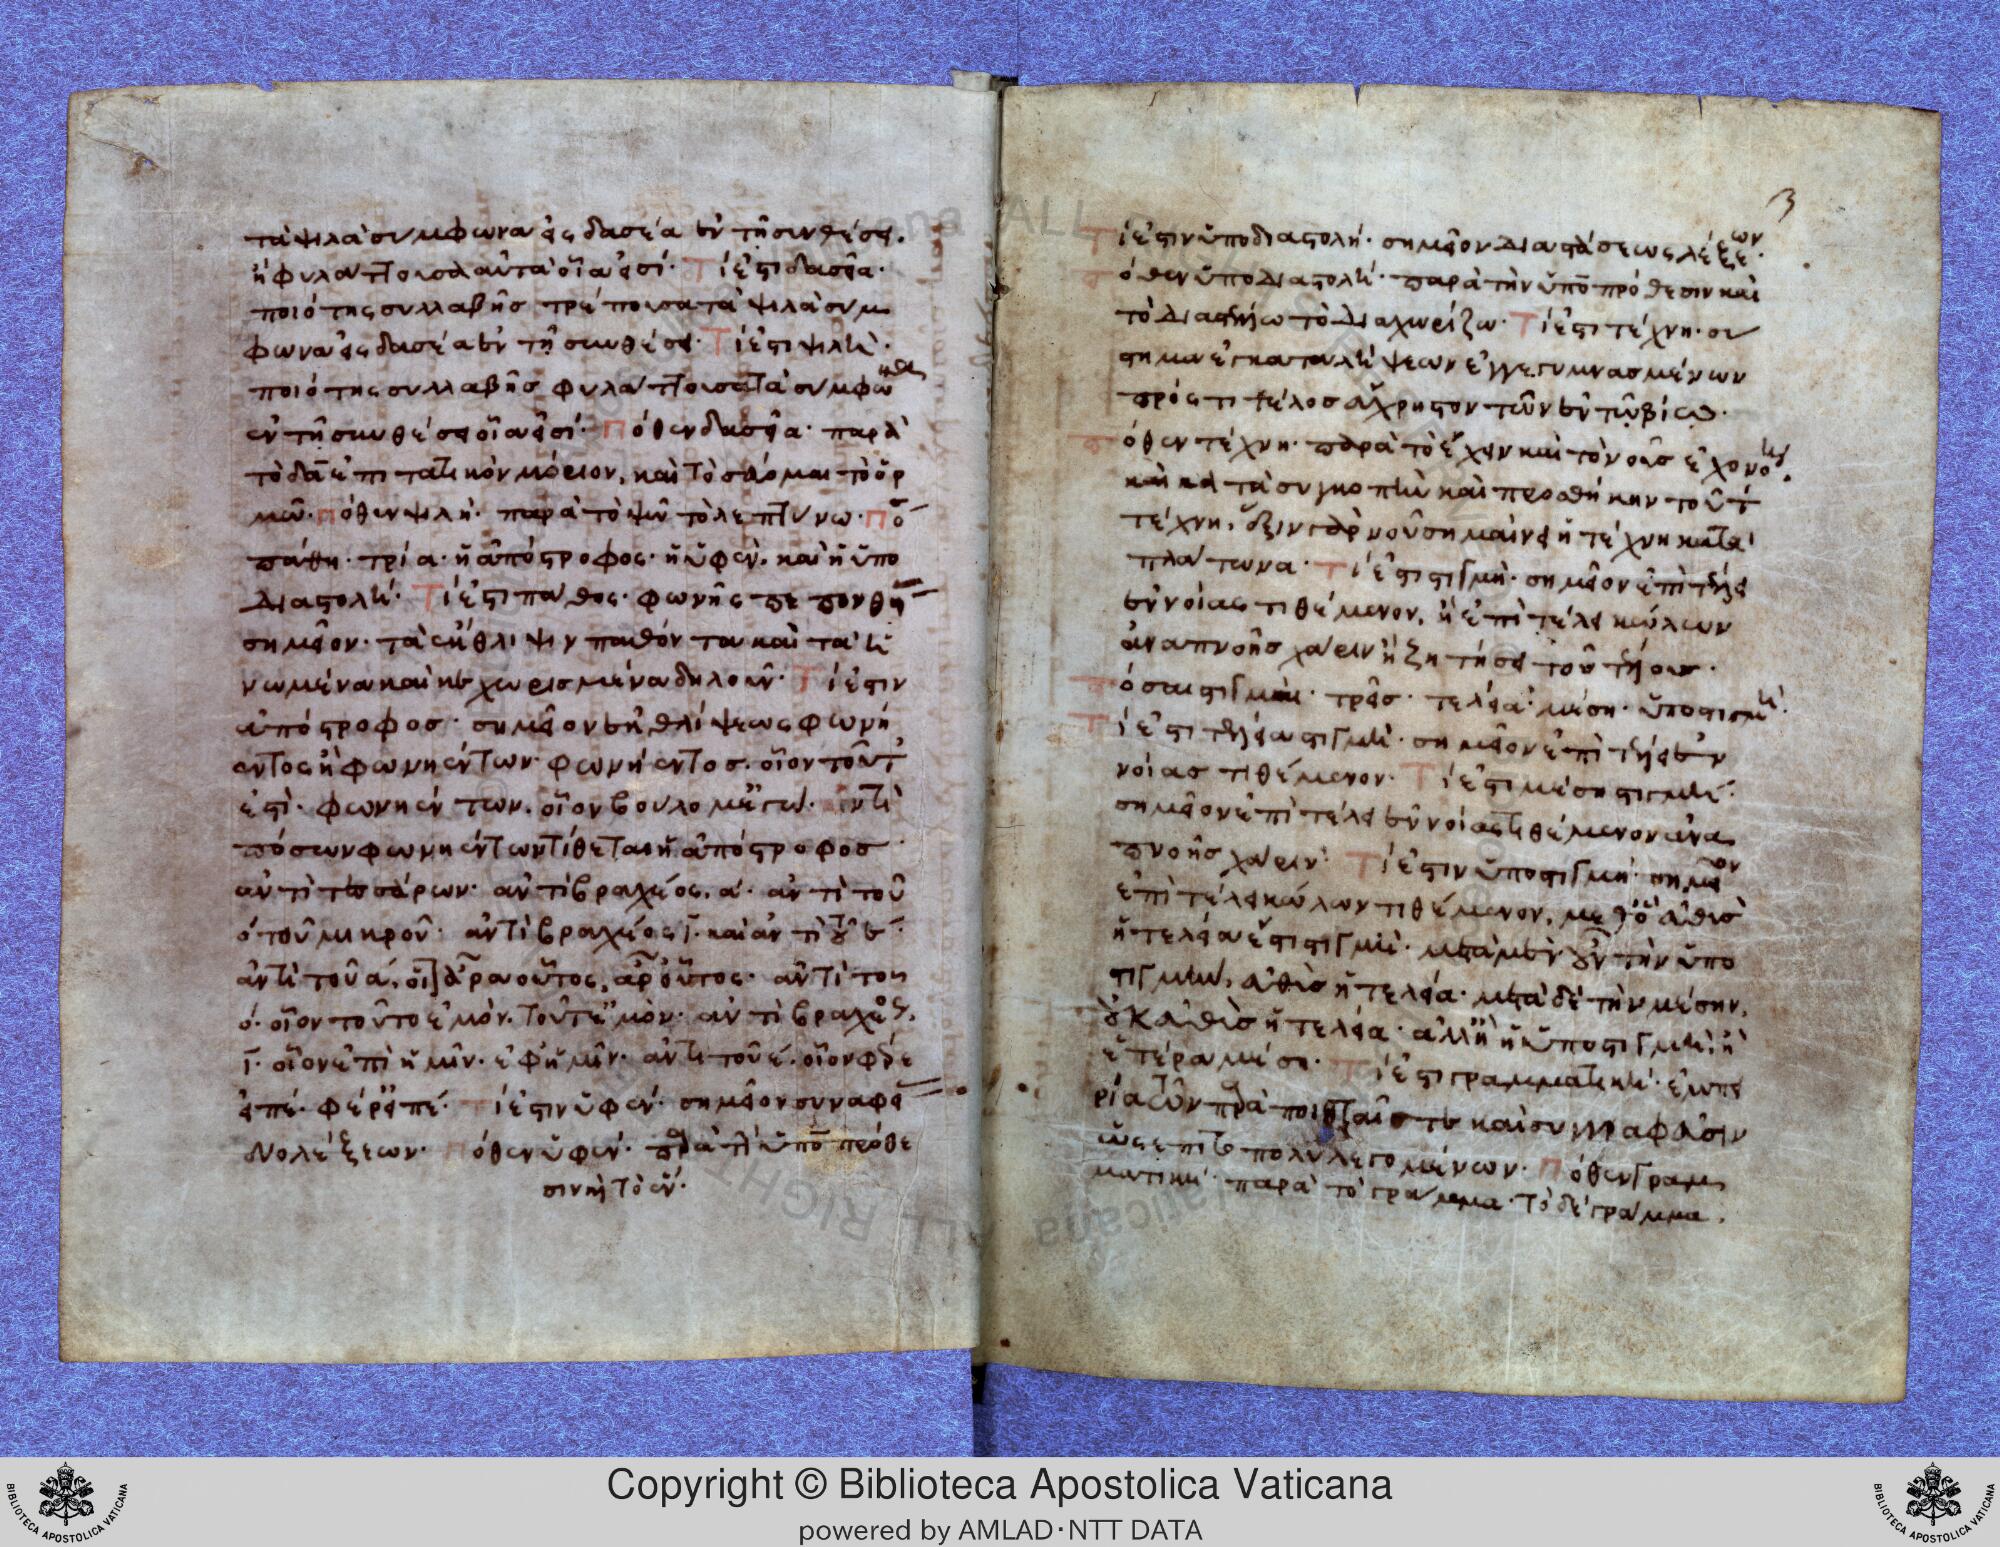 τὰ ψιλὰ σύμφωνα εἰς δασέα ἐν τῇ συνθέσει.
ἢ φυλάττουσα αὐτὰ οἷά εἰσί· Τί ἐστι δασεῖα·
ποιότης συλλαβῆς τρέπουσα τὰ ψιλὰ σύμ
φωνα εἰς δασέα ἐν τῇ συνθέσει· Τί ἐστι ψιλή·
ποιότης συλλαβῆς φυλάττουσα τὰ σύμφω
ἐν τῇ συνθέσει οἷά εἰσί· Πόθεν δασεῖα· παρὰ
τὸ δα ἐπιτατικὸν μόριον, καὶ τὸ
Πόθεν ψιλή· παρὰ τὸ τὸ λεπτύνω· Πό
πάθη· τρία· ἡ ἀπόστροφος· ἡ ὑφέν. καὶ ἡ ὑπο
διαστολή· Τί ἐστι πάθος· φωνῆς
σημεῖον· τὰ ἔκθλιψιν παθόντα καὶ τὰ
νωμένα καὶ κεχωρισμένα δηλοῦν· Τί ἐστιν
ἀπόστροφος· σημεῖον ἐκθλίψεως φωνή
εντος ἢ φωνηέντων· φωνήεντος. οἷον
ἐστί· φωνηέντων. οἷον βουλομ
πόσων φωνηέντων τίθεται ἡ ἀπόστροφος
ἀντὶ τεσσάρων· ἀντὶ βραχέος. α· ἀντὶ τοῦ
ο τοῦ μικροῦ· ἀντὶ βραχέος ι· καὶ ἀντὶ τοῦ ε·
ἀντὶ τοῦ α. ἆρα οὗτος, ἆρ' οὗτος· ἀντὶ τοῦ
ο· οἷον τοῦτο ἐμόν. τοῦτ' ἐμόν· ἀντὶ βραχέος.
ι· οἷον ἐπὶ ἡμῖν· ἐφ' ἡμῖν· ἀντὶ τοῦ ε. οἷον φέρε
εἰπέ· φέρ' εἰπέ· Τί ἐστιν ὑφέν· σημεῖον συναφεί
λέξεων· Πόθεν ὑφέν· παρὰ τὴν ὑπὸ πρόθε
σιν καὶ τὸ ἕν·
3
Τί ἐστιν ὑποδιαστολή· σημεῖον διαστάσεως λέξεων·
Πόθεν ὑποδιαστολή· παρὰ τὴν ὑπὸ πρόθεσιν καὶ
τὸ τὸ διαχωρίζω· Τί ἐστι τέχνη· σύ
στημα ἐγκαταλήψεων ἐγγεγυμνασμένων
πρός τι τέλος εὔχρηστον τῶν ἐν τῷ βίῳ·
Πόθεν τέχνη· παρὰ τὸ ἔχειν καὶ τὸν νοῦν
καὶ κατὰ συγκοπὴν καὶ προσθήκην τοῦ τ
τέχνη. ἕξιν γὰρ νοῦ σημαίνει ἡ τέχνη κατὰ
πλάτωνα· Τί ἐστι στιγμή· σημεῖον ἐπὶ τέλει
ἐννοίας τιθέμενον, ἢ ἐπὶ τέλει κώλων
ἀναπνοῆς χάριν ἢ ζητήσει τοῦ τέλους·
Πόσαι στιγμαί· τρεῖς· τελεία· μέση· ὑποστιγμή·
Τί ἐστι τελεία στιγμή· σημεῖον ἐπὶ τέλει ἐν
νοίας τιθέμενον· Τί ἐστι μέση στιγμή·
σημεῖον ἐπὶ τέλει ἐννοίας τιθέμενον ἀνα
πνοῆς χάριν· Τί ἐστιν ὑποστιγμή· σημεῖον
ἐπὶ τέλει κώλων τιθέμενον, μεθ' ὃ εὐθὺς
ἡ τελεία ἔστι στιγμή· μετὰ μὲν οὖν τὴν ὑπο
στιγμήν, εὐθὺς ἡ τελεία· μετὰ δὲ τὴν μέσην,
οὐκ εὐθὺς ἡ τελεία· ἀλλ' ἢ ἡ ὑποστιγμή, ἢ
ἑτέρα μέση· Τί ἐστι γραμματική· ἐμπει
ρία τῶν παρὰ ποιηταῖς τε καὶ συγγραφεῦσιν
ὡς ἐπὶ τὸ πολὺ λεγομένων· Πόθεν γραμ
ματική· παρὰ τὸ γράμμα· τὸ δὲ γράμμα.
Copyright © Biblioteca Apostolica Vaticana
powered by AMLAD·NTT DATA
BIBLIOTECA APOSTOLICA VATICANA
BIBLIOTECA APOSTOLICA VATICANA